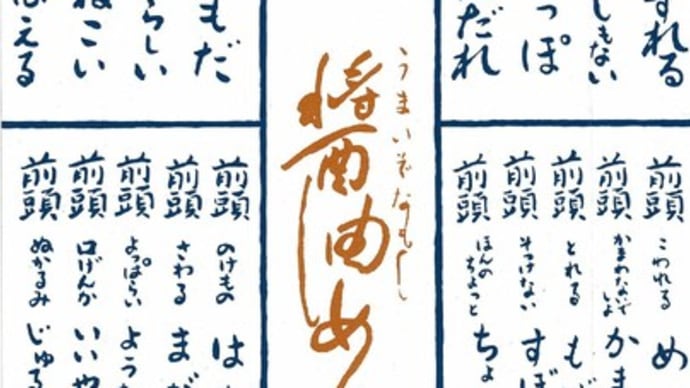 れる
しもない
っぽ
だれ
前頭 こわれる め
前頭 かまわないでいよ かま
前頭 とれる も
前頭 そっけない すぼ
前頭 ほんのちょっと ちょ
うまいぞなもし
醤油め
もだ
らしい
ねこい
える
前頭 のけもの は
前頭 さわる まだ
前頭 よっぱらい よう
前頭 口げんか いいや
前頭 ぬかるみ じゅる